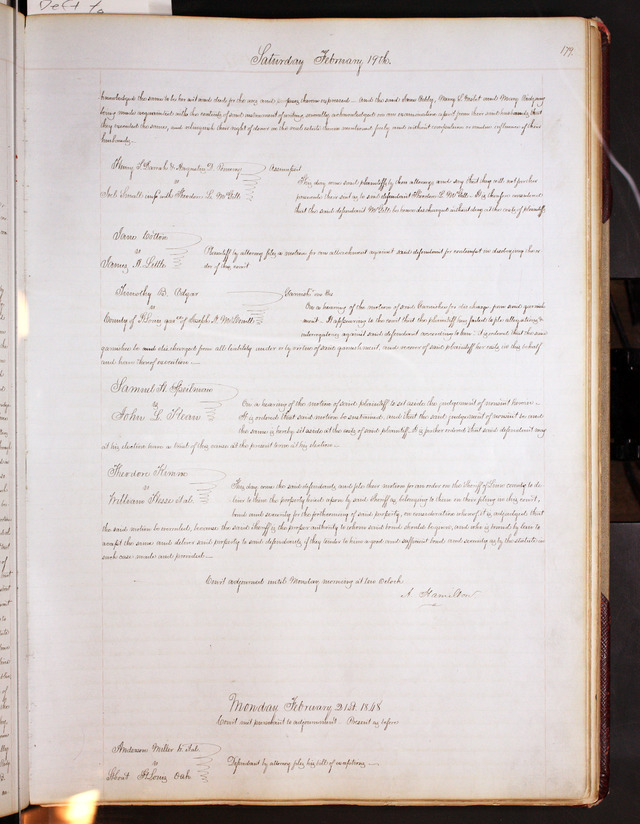 Saturday February 19th.
179.
acknowledged the same to be her act and deed for the uses and purposes therein expressed. And the said Jane Kibby, Mary L. and Mary
being made acquainted with the contents of said instrument of writing, severally acknowledged on an examination apart from their said husbands, that
they executed the same, and relinquish their right of dower in the real estate therein mentioned freely and without compulsion or undue influence of their
husbands.
Henry S. & Augustus D.
vs
Joel Small imp'd with Theodore L. McGill
Assumpsit
This day come said plaintiffs by their attorney and say that they will not further
prosecute their suit as to said defendant Theodore L. McGill. It is therefore considered
that the said defendant McGill be hence discharged without day at the costs of plaintiffs
Jane Wilton
vs
James M. Little
Plaintiff by attorney files a motion for an attachment against said defendant for contempt in disobeying the or-
der of this court
Timothy B. Edgar
vs
County of St Louis gar'ee of Joseph A.
Garnishee on the
On a hearing of the motion of said Garnishee for discharge from said garnish-
ment. It appearing to the court that the plaintiff has failed to file allegations &
interrogatories against said defendant according to law. It is ordered that the said
garnishee be and discharged from all liability under or by virtue of said garnishment, and recover of said plaintiff her costs in this behalf
and have thereof execution.
Samuel H.
vs
John G. Stean
On a hearing of the motion of said plaintiff to set aside the judgement of nonsuit herein
It is ordered that said motion be sustained, and that the said judgement of nonsuit be and
the same is hereby set aside at the costs of said plaintiff. It is further ordered that said defendant may
at his election have a trial of this cause at the present term at his election.
Theodore Kimm
vs
William Hesse et al
This day come the said defendants, and file their motion for an order on the Sheriff of this county to de-
liver to them the property levied upon by said Sheriff as belonging to them on their filing in this court,
bond and security for the forthcoming of said property, on consideration whereof it is adjudged that
the said motion be overruled, because the said sheriff is the proper authority to whom said bond should be given, and who is bound by law to
accept the same and deliver said property to said defendants, if they tender to him a good and sufficient bond and security as by the statute in
such case made and provided.
Court adjourned until Monday morning at ten Oclock
A. Hamilton
Monday February 21st. 1848
Court met pursuant to adjournment. Present as before
Anderson Miller et al
vs
St Louis Oak
Defendant by attorney files his bill of exceptions